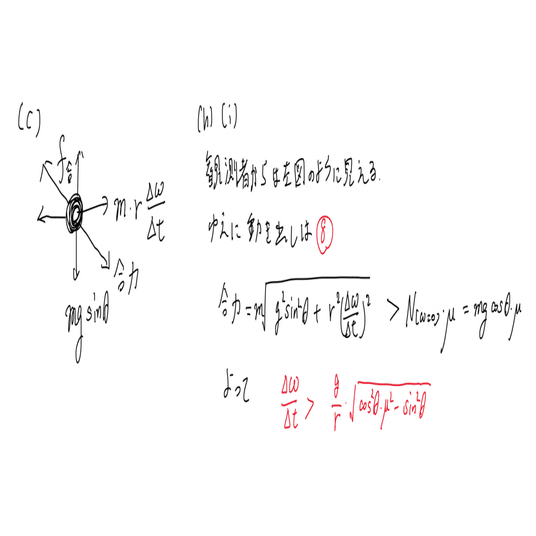 (C)
f合
m・r Δω/Δt
合力
mg sinθ
(h) (i)
観測者からは左図のように見える.
ゆえに動き出しは ⑧
合力 = m√(g²sin²θ + r²(Δω/Δt)²) > N(ω=0)・μ = mg cosθ・μ
よって Δω/Δt > g/r・√(cos²θ・μ² - sin²θ)